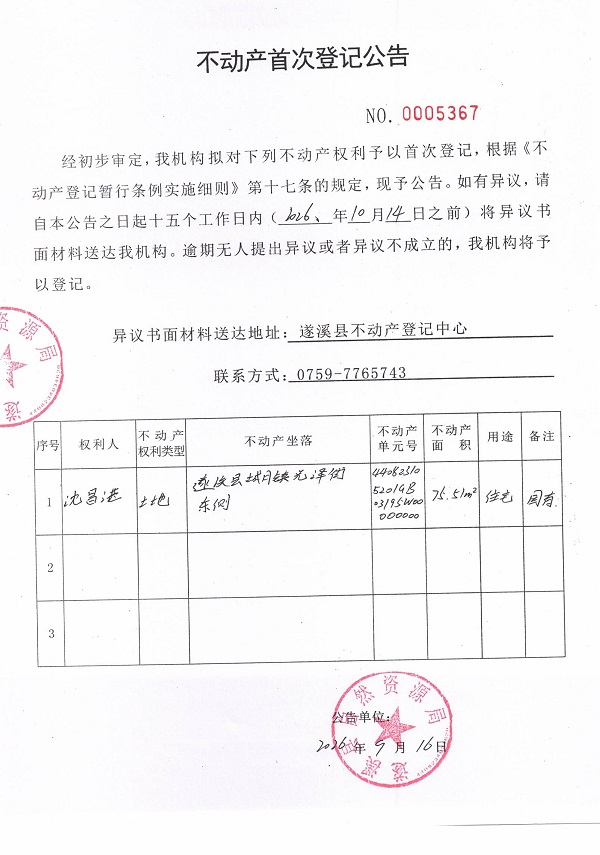 不动产首次登记公告
NO. 0005367
经初步审定，我机构拟对下列不动产权利予以首次登记，根据《不
动产登记暂行条例实施细则》第十七条的规定，现予公告。如有异议，请
自本公告之日起十五个工作日内（2026、年10月14日之前）将异议书
面材料送达我机构。逾期无人提出异议或者异议不成立的，我机构将予
以登记。
异议书面材料送达地址：遂溪县不动产登记中心
联系方式：0759-7765743
序号 权利人 不动产权利类型 不动产坐落 不动产单元号 不动产面积 用途 备注
1 沈昌进 土地 遂溪县城月镇光泽街东侧 440803105201GB03195W00000000 75.51m² 住宅 国有
2
3
公告单位：
2026年9月16日
遂溪县自然资源局